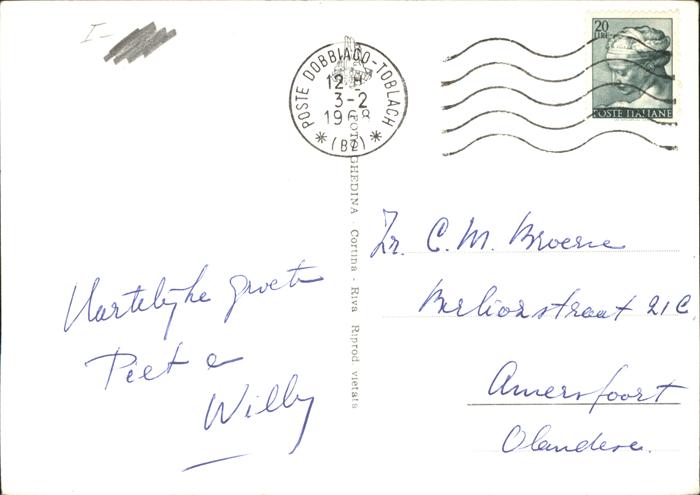 I-
POSTE DOBBIACO-TOBLACH
12-H
3-2
1968
(BZ)
20
LIRE
POSTE ITALIANE
FOTO GHEDINA - Cortina - Riva Riprod vietata
Hartelijke groeten
Piet en
Willy
Zr. C. M. Broerse
Berliozstraat 21 C.
Amersfoort
Olandese.